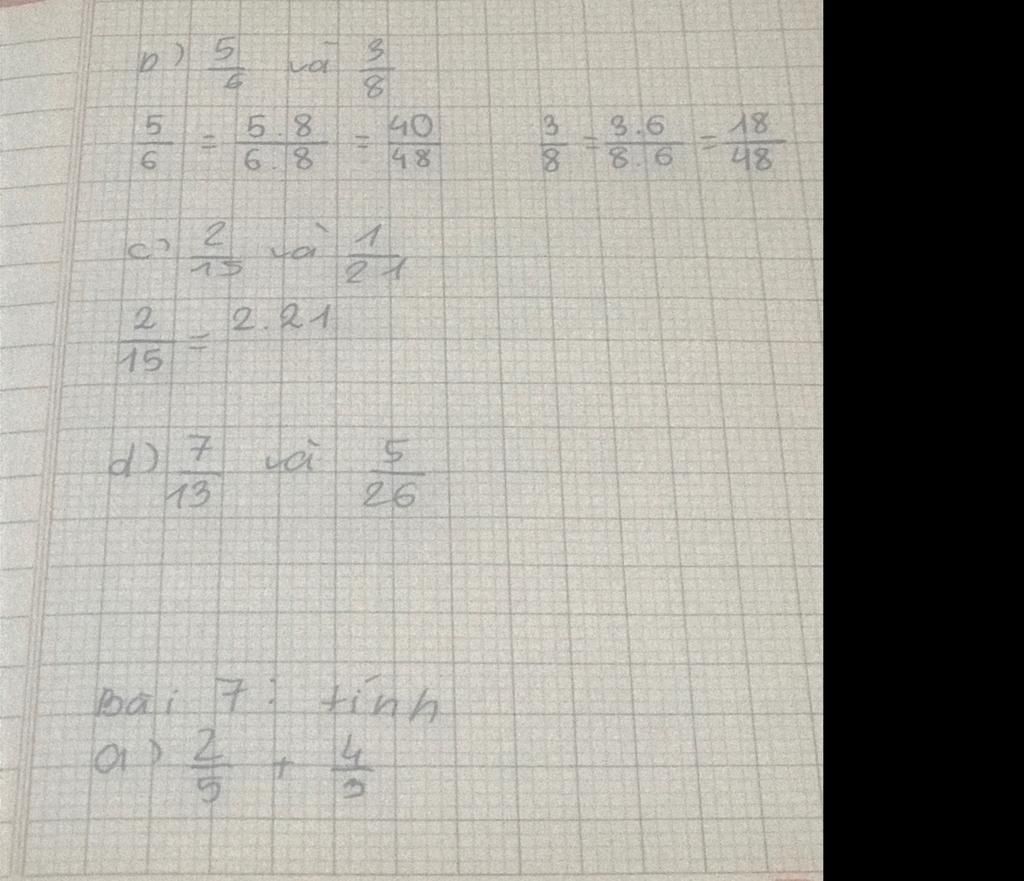 b) 5/6 và 3/8
5/6 = 5.8/6.8 = 40/48 3/8 = 3.6/8.6 = 18/48
c) 2/15 và 1/21
2/15 = 2.21
d) 7/13 và 5/26
Bài 7: tính
a) 2/5 + 4/